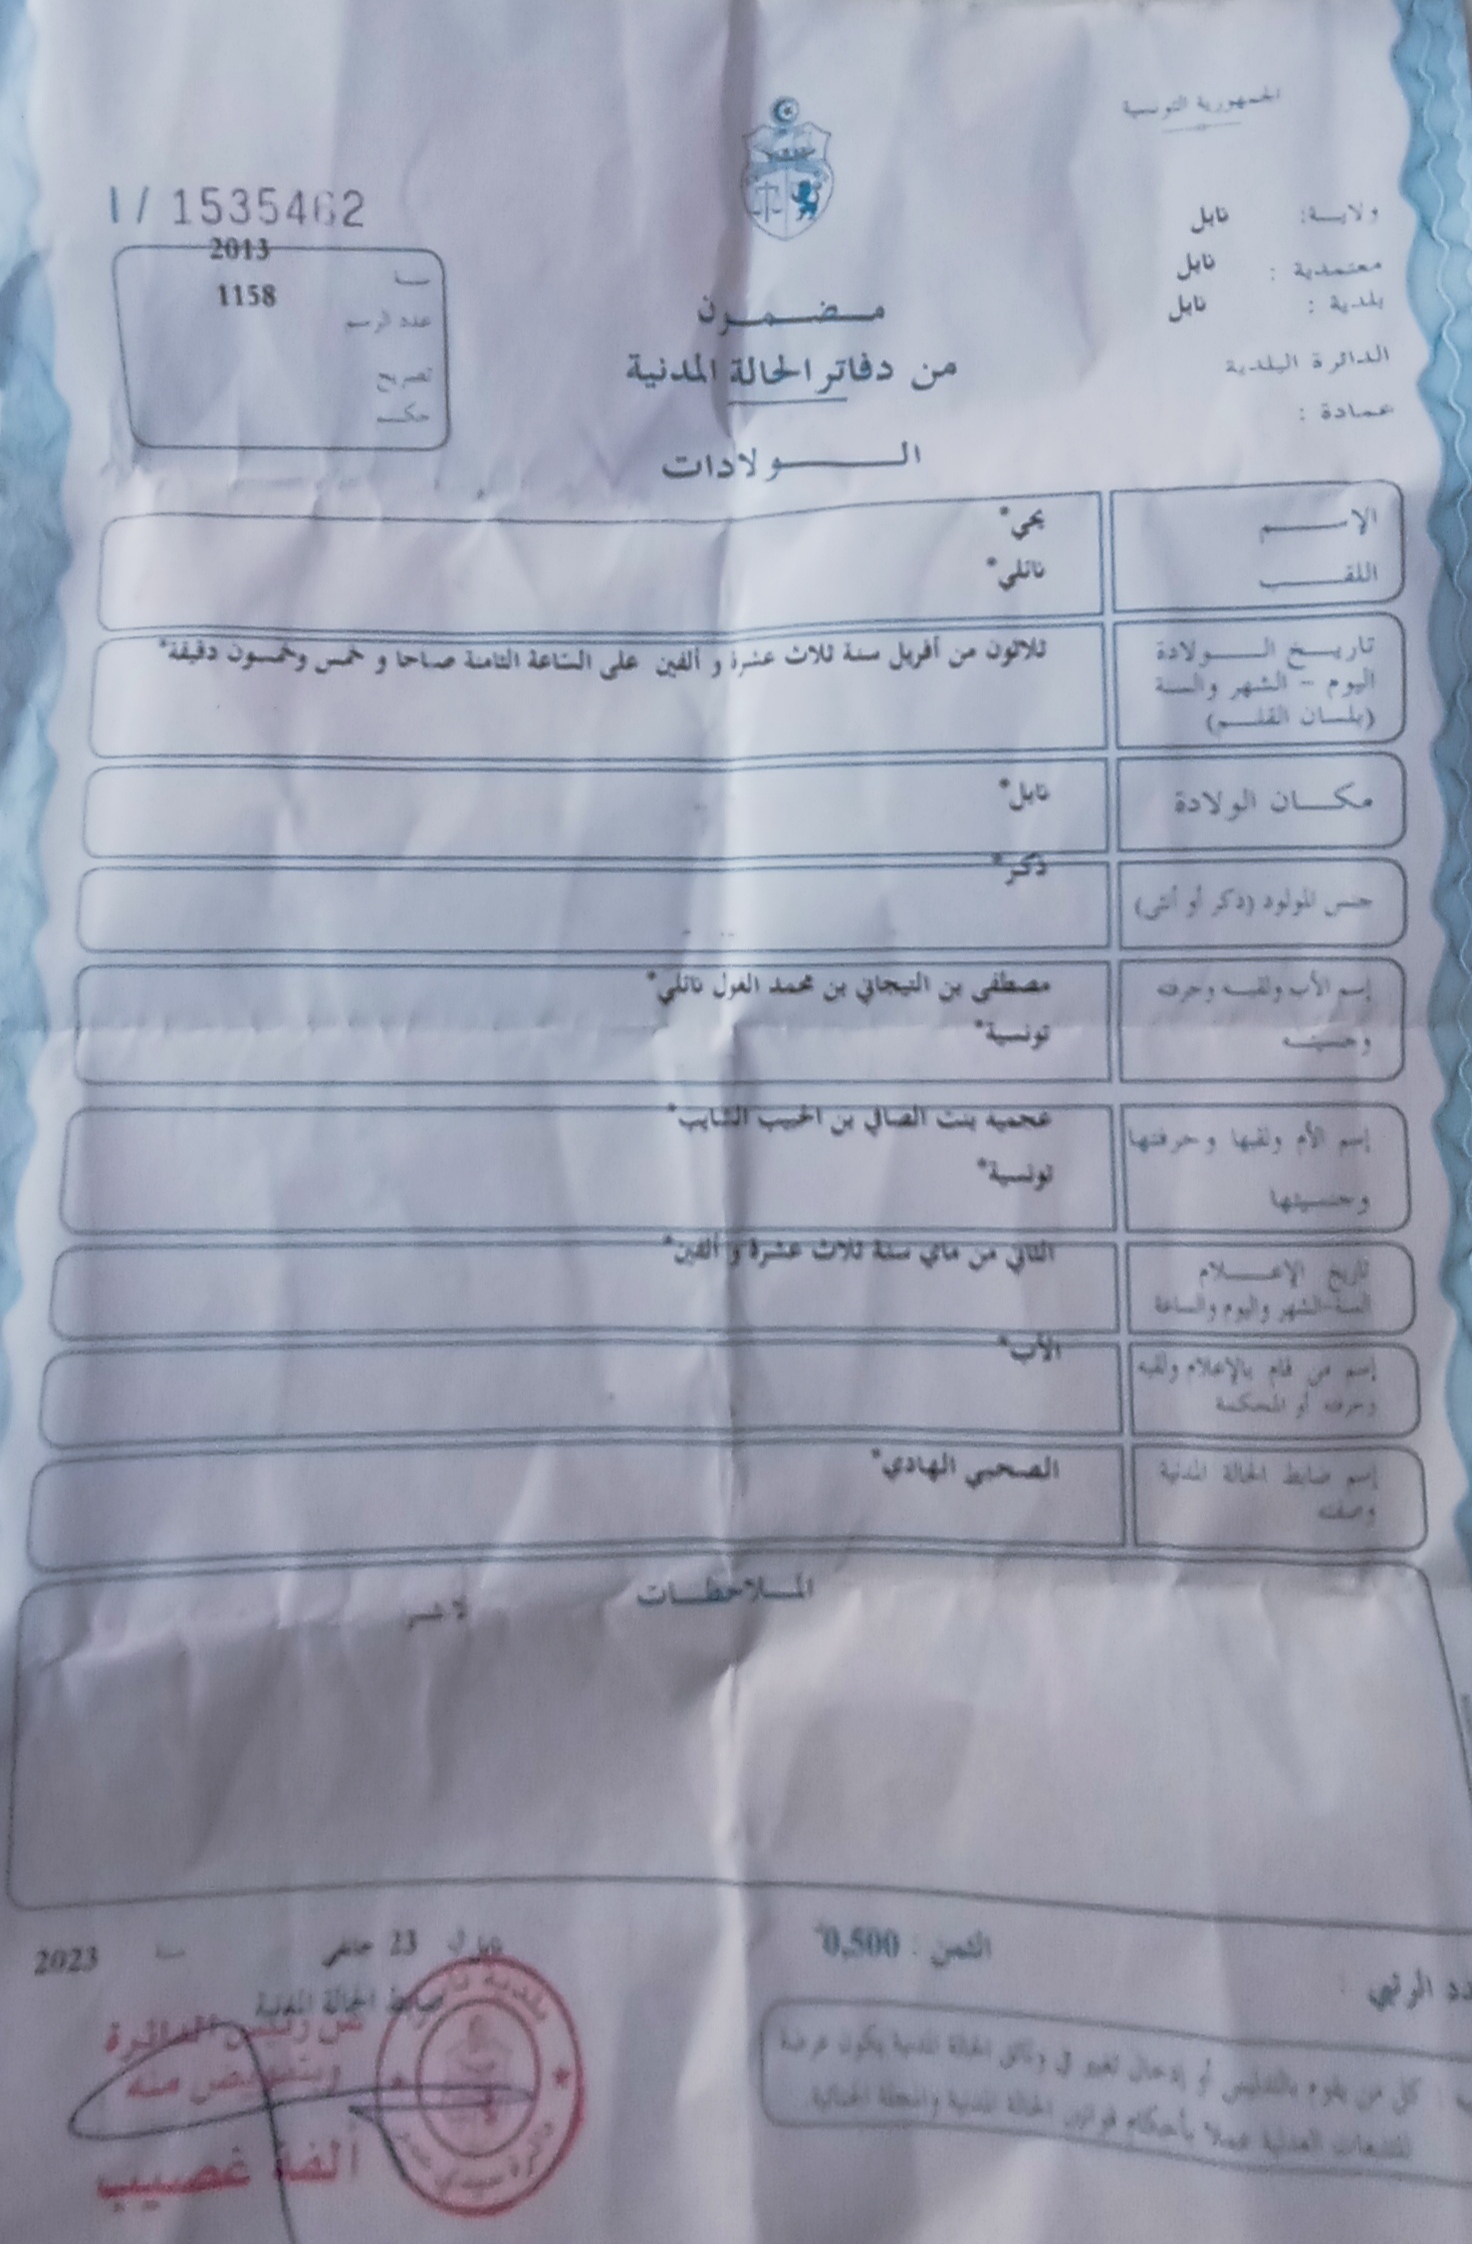 الجمهورية التونسية
I/ 1535462
ولاية: نابل
معتمدية : نابل
بلدية : نابل
الدائرة البلدية
عمادة :
2013
1158
عدد الرسم
تصريح
حكم
مضمون
من دفاتر الحالة المدنية
الولادات
الاسم يحي*
اللقب نائلي*
تاريخ الولادة ثلاثون من أفريل سنة ثلاث عشرة و ألفين على الساعة الثامنة صباحا و خمس وخمسون دقيقة*
اليوم - الشهر والسنة
(بلسان القلم)
مكان الولادة نابل*
جنس المولود (ذكر أو أنثى) ذكر*
إسم الأب ولقبه وحرفته مصطفى بن التيجاني بن محمد الغول نائلي*
وجنسيته تونسية*
إسم الأم ولقبها وحرفتها بنت بن الحبيب الشايب*
وجنسيتها تونسية*
تاريخ الإعلام الثاني من ماي سنة ثلاث عشرة و ألفين*
السنة-الشهر واليوم والساعة
إسم من قام بالإعلام ولقبه الأب*
وحرفته أو المحكمة
إسم ضابط الحالة المدنية الصحبي الهادي*
وصفته
الملاحظات
نابل في 23 جانفي سنة 2023
الثمن : 0,500
ضابط الحالة المدنية
عن رئيس الدائرة
وبتفويض منه
ألفة غصيب
كل من يقوم بالتدليس أو إدخال تغيير في وثائق الحالة المدنية يكون عرضة
للتتبعات العدلية عملا بأحكام قوانين الحالة المدنية والمجلة الجنائية